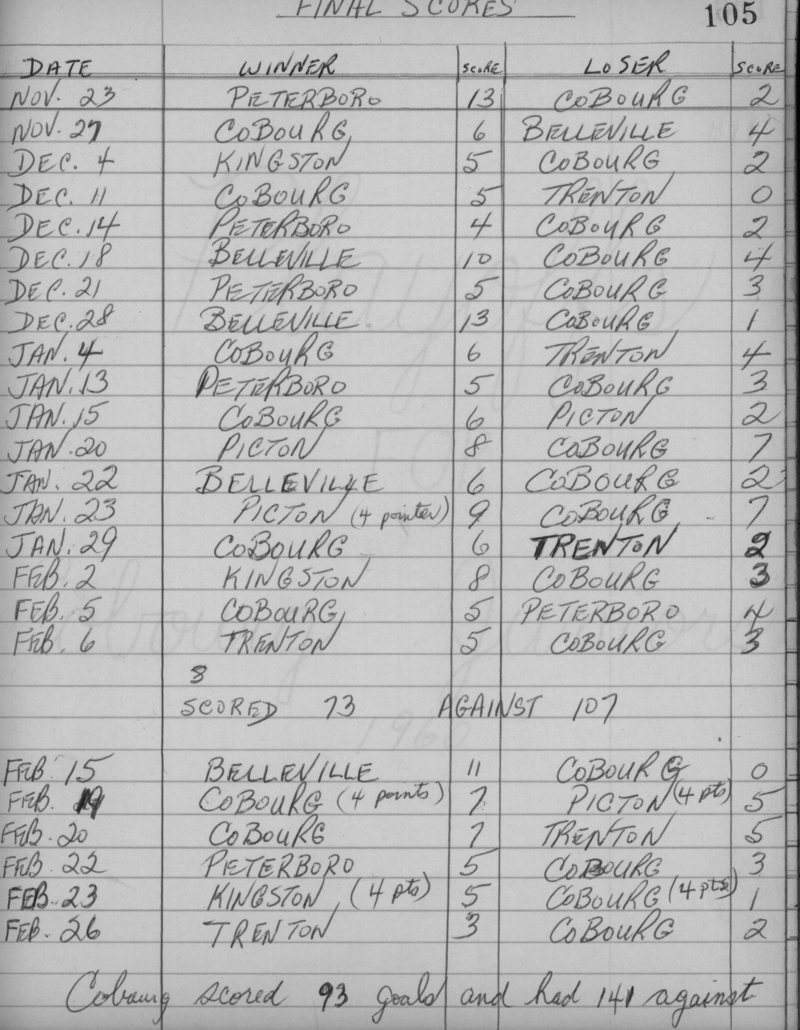 FINAL SCORES 105
DATE WINNER SCORE LOSER SCORE
NOV. 23 PETERBORO 13 COBOURG 2
NOV. 27 COBOURG 6 BELLEVILLE 4
DEC. 4 KINGSTON 5 COBOURG 2
DEC. 11 COBOURG 5 TRENTON 0
DEC. 14 PETERBORO 4 COBOURG 2
DEC. 18 BELLEVILLE 10 COBOURG 4
DEC. 21 PETERBORO 5 COBOURG 3
DEC. 28 BELLEVILLE 13 COBOURG 1
JAN. 4 COBOURG 6 TRENTON 4
JAN. 13 PETERBORO 5 COBOURG 3
JAN. 15 COBOURG 6 PICTON 2
JAN. 20 PICTON 8 COBOURG 7
JAN. 22 BELLEVILLE 6 COBOURG 2
JAN. 23 PICTON (4 pointer) 9 COBOURG 7
JAN. 29 COBOURG 6 TRENTON 2
FEB. 2 KINGSTON 8 COBOURG 3
FEB. 5 COBOURG 5 PETERBORO 4
FEB. 6 TRENTON 5 COBOURG 3
8
SCORED 73 AGAINST 107
FEB. 15 BELLEVILLE 11 COBOURG 0
FEB. 19 COBOURG (4 points) 7 PICTON (4 pts) 5
FEB. 20 COBOURG 7 TRENTON 5
FEB. 22 PETERBORO 5 COBOURG 3
FEB. 23 KINGSTON (4 pts) 5 COBOURG (4 pts) 1
FEB. 26 TRENTON 3 COBOURG 2
Cobourg scored 93 goals and had 141 against